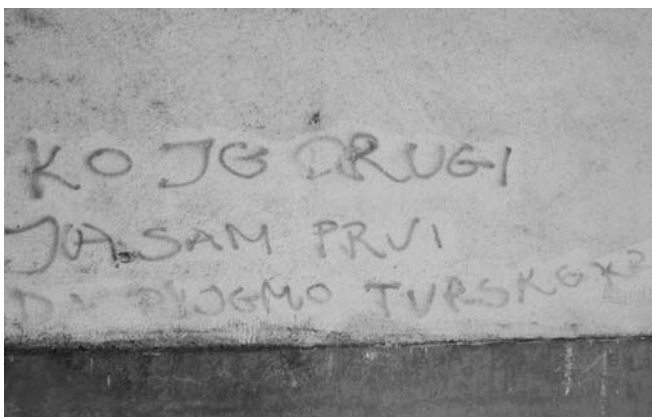 KO JE DRUGI
JA SAM PRVI
DA PIJEMO TURSKU